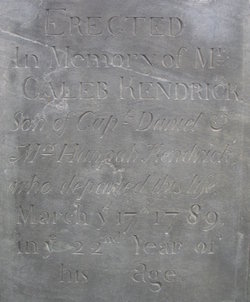 ERECTED
In Memory of Mr
CALEB KENDRICK
Son of Capt. Daniel &
Mrs Hannah Kendrick
who departed this life
March ye 17th 1789
in ye 22nd Year of
his Age.